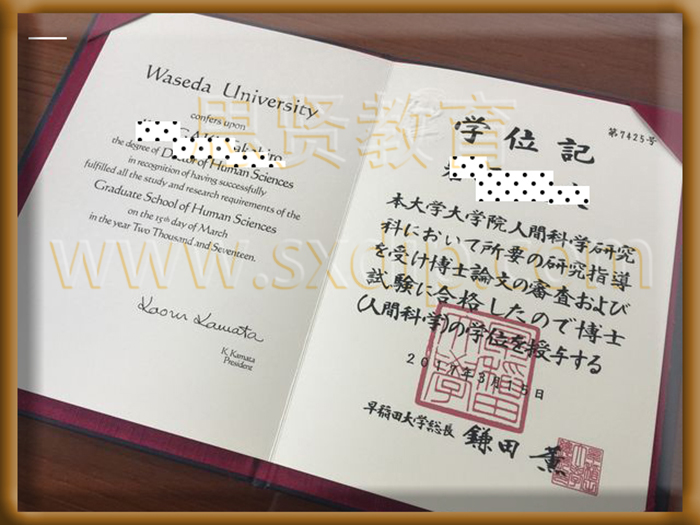 Waseda University
confers upon
the degree of Doctor of Human Sciences
in recognition of having successfully
fulfilled all the study and research requirements of the
Graduate School of Human Sciences
on the 15th day of March
in the year Two Thousand and Seventeen.
K. Kamata
President
思贤教育
第7425号
学位記
本大学大学院人間科学研究
科において所要の研究指導
を受け博士論文の審査および
試験に合格したので博士
(人間科学)の学位を授与する
2017年3月15日
早稲田大学総長 鎌田 薫